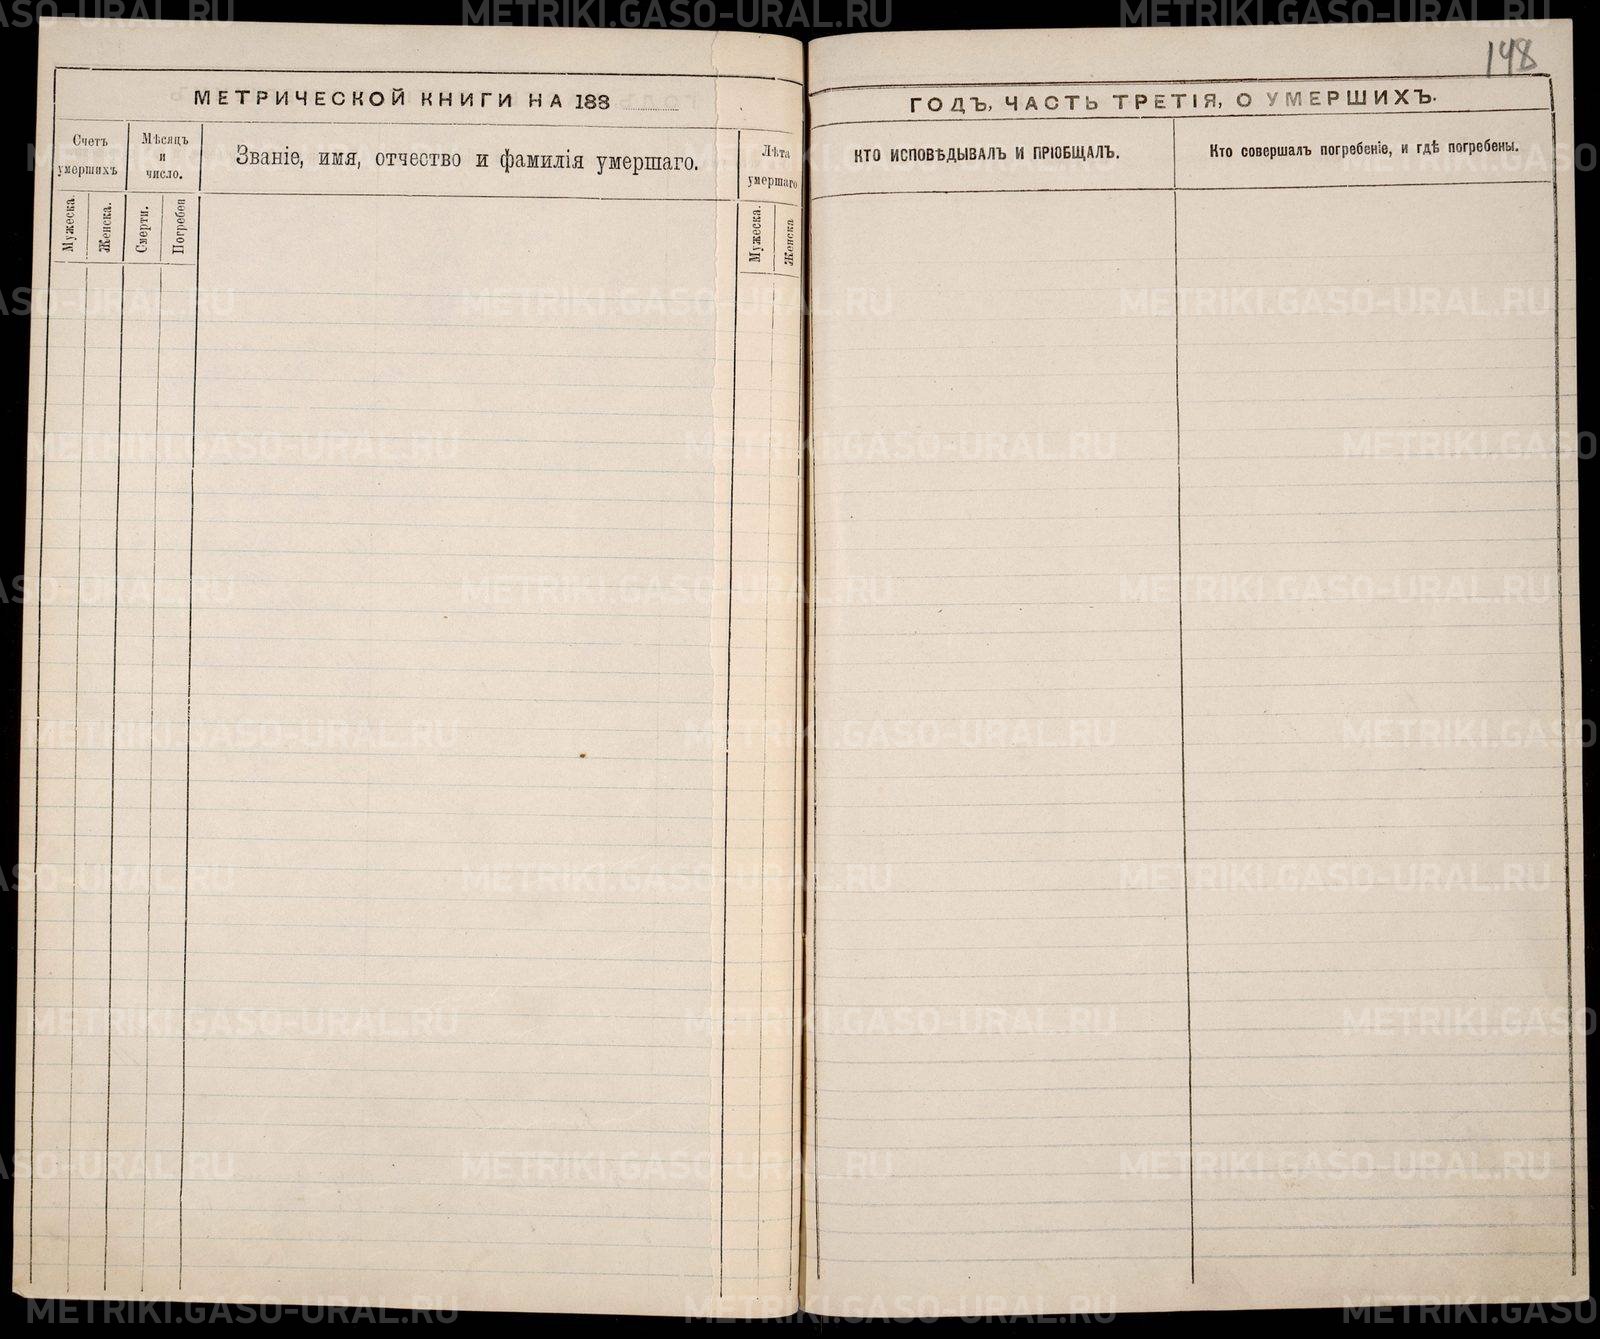 148
МЕТРИЧЕСКОЙ КНИГИ НА 188
ГОДЪ, ЧАСТЬ ТРЕТІЯ, О УМЕРШИХЪ.
Счетъ
умершихъ
Мѣсяцъ
и
число.
Званіе, имя, отчество и фамилія умершаго.
Лѣта
умершаго
Мужеска.
Женска.
Смерти.
Погребен
Мужеска.
Женска
КТО ИСПОВѢДЫВАЛЪ И ПРІОБЩАЛЪ.
Кто совершалъ погребеніе, и гдѣ погребены.
METRIKI.GASO-URAL.RU